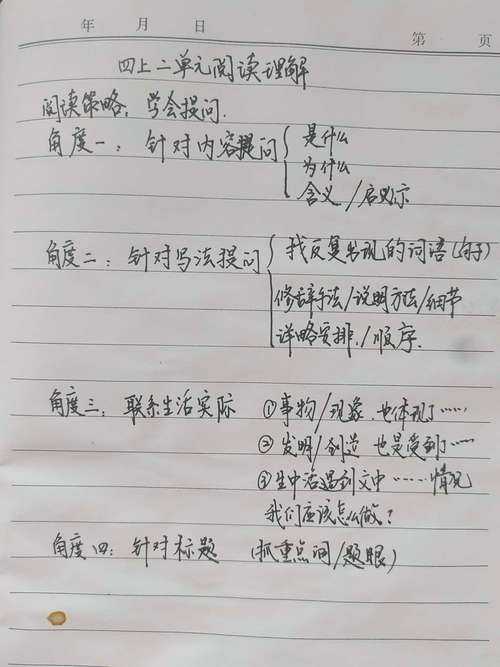 年 月 日 第 页
四上二单元阅读理解
阅读策略：学会提问.
角度一：针对内容提问 是什么
为什么
含义/启示
角度二：针对写法提问 找反复出现的词语(句子)
修辞手法/说明方法/细节
详略安排./顺序.
角度三：联系生活实际 ①事物/现象.也体现了……
②发明/创造 也是受到了……
③生中活遇到文中……情况
我们应该怎么做?
角度四：针对标题 (抓重点词/题眼)